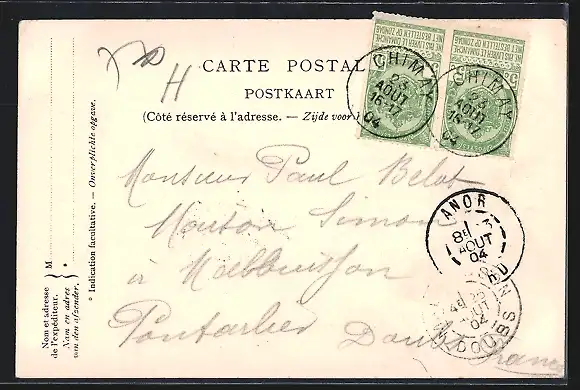 H
CARTE POSTAL
POSTKAART
(Côté réservé à l'adresse. — Zijde voor
NE PAS LIVRER LE DIMANCHE
NIET BESTELLEN OP ZONDAG
NE PAS LIVRER LE DIMANCHE
NIET BESTELLEN OP ZONDAG
5
5
CHIMAY
23
AOUT
16-17
04
CHIMAY
23
AOUT
16-17
04
Monsieur Paul Belot
Maison Simon
à Malbuisson
Pontarlier Doubs
France
ANOR
8E
AOUT
04
AOUT
04
DOUBS
* Indication facultative. — Onverplichte opgave.
M
*
Nom et adresse
de l'expéditeur.
Naam en adres
van den afzender.